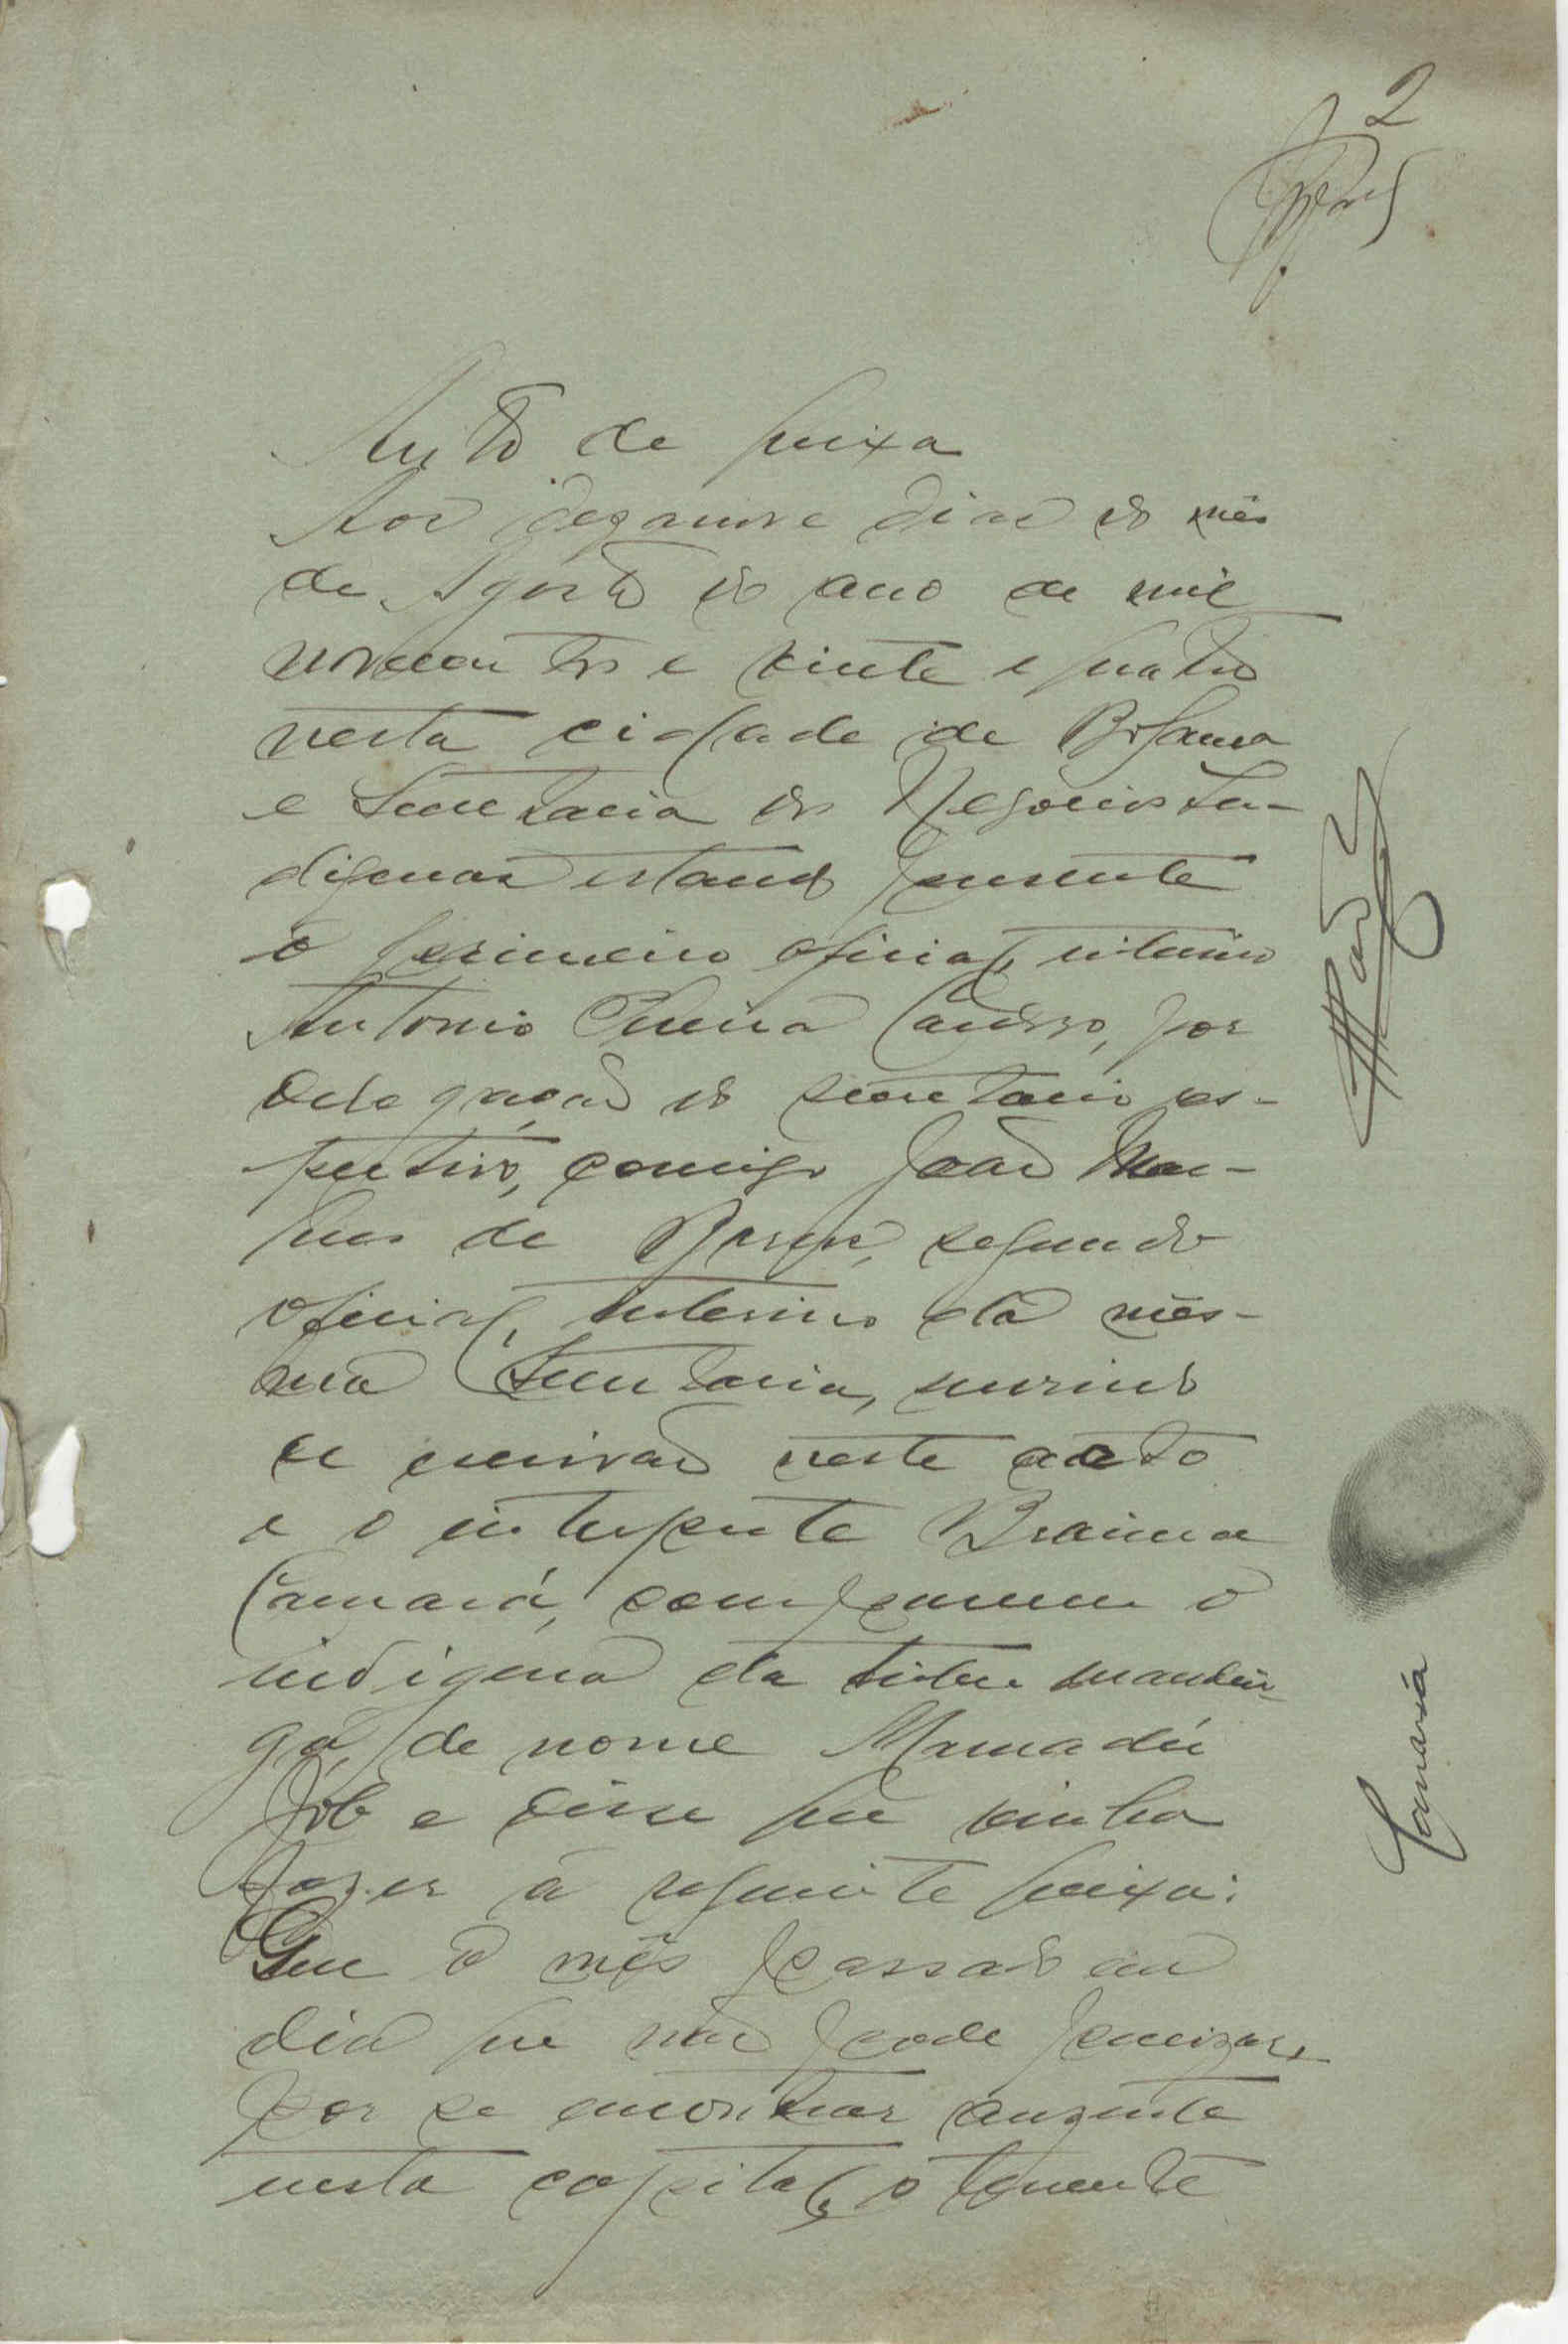 2
Auto de queixa
Aos dezanove dias do mês
de Agosto do ano de mil
novecentos e vinte e quatro
nesta cidade de Bolama
e Secretaria dos Negocios In-
digenas estando presente
o primeiro oficial, interino
Antonio Pereira Cardoso, por
delegação do secretario res-
pectivo, comigo João Mar-
ques de Barros, segundo
oficial, interino da mes-
ma Secretaria, servindo
de escrivão neste acto
e o interprete Braima
Camará, compareceu o
indigena da tribu mandin-
ga, de nome Mamadú
Job e disse que vinha
fazer a seguinte queixa:
Que o mês passado em
dia que não pode precizar,
por se encontrar auzente
nesta capital, o tenente
Camará